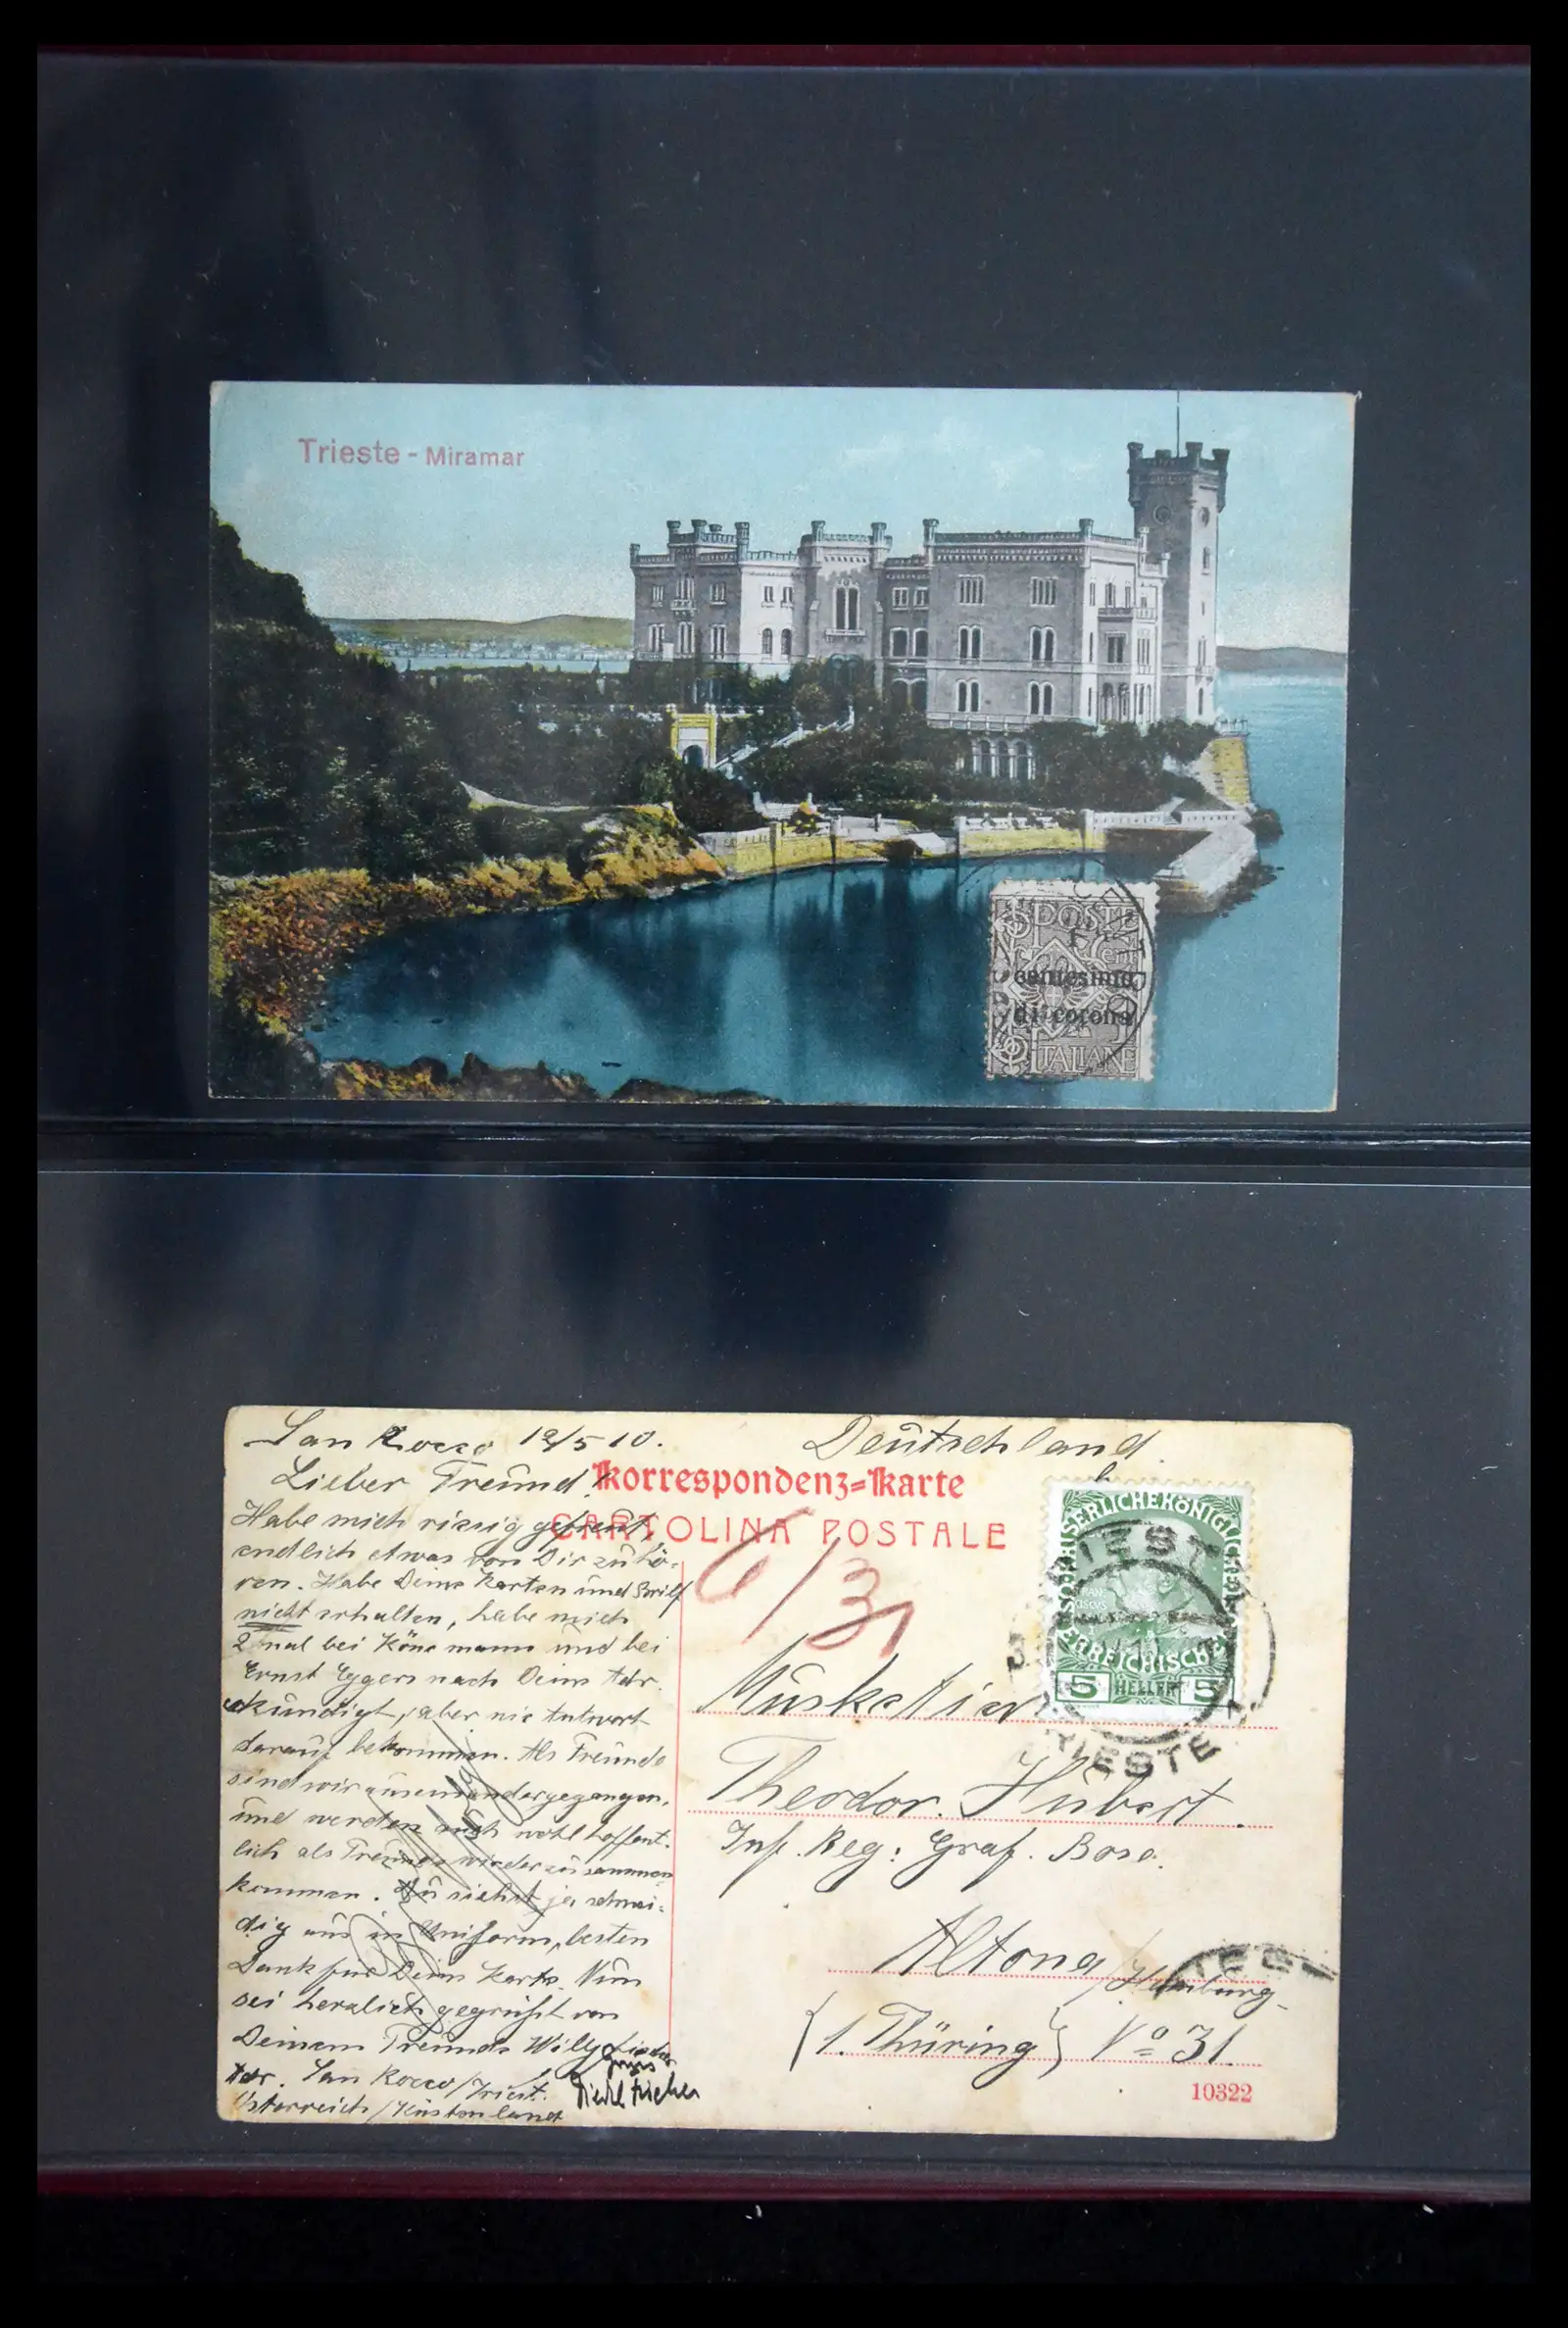 Trieste - Miramar
POSTE
centesimo
di corona
ITALIANE
San Rocco 12/5 10.
Deutschland.
Lieber Freund!
Korrespondenz=Karte
CARTOLINA POSTALE
Habe mich riesig gefreut,
endlich etwas von Dir zu hö-
ren. Habe Deine Karten und Brief
nicht erhalten, habe mich
2 mal bei Könemann und bei
Ernst Eggers nach Deine Adr.
erkündigt, aber nie Antwort
darauf bekommen. Als Freunde
sind wir auseinandergegangen,
und werden auch wohl hoffent-
lich als Freunde wieder zusammen
kommen. Du siehst ja schnei-
dig aus in Uniform, besten
Dank für Deine Karte. Nun
sei herzlich gegrüßt von
Deinem Freunde Willy
Adr. San Rocco/Triest.
Österreich/Küstenland
6/31
KAISERLICHEKÖNIGLICHE
ÖSTERREICHISCHE
5 HELLER 5
TRIESTE
TRIESTE
Musketier
Theodor. Hubert.
Inf. Reg: Graf. Bose.
Altona/Hamburg-
(1. Thüring) No 31.
10322